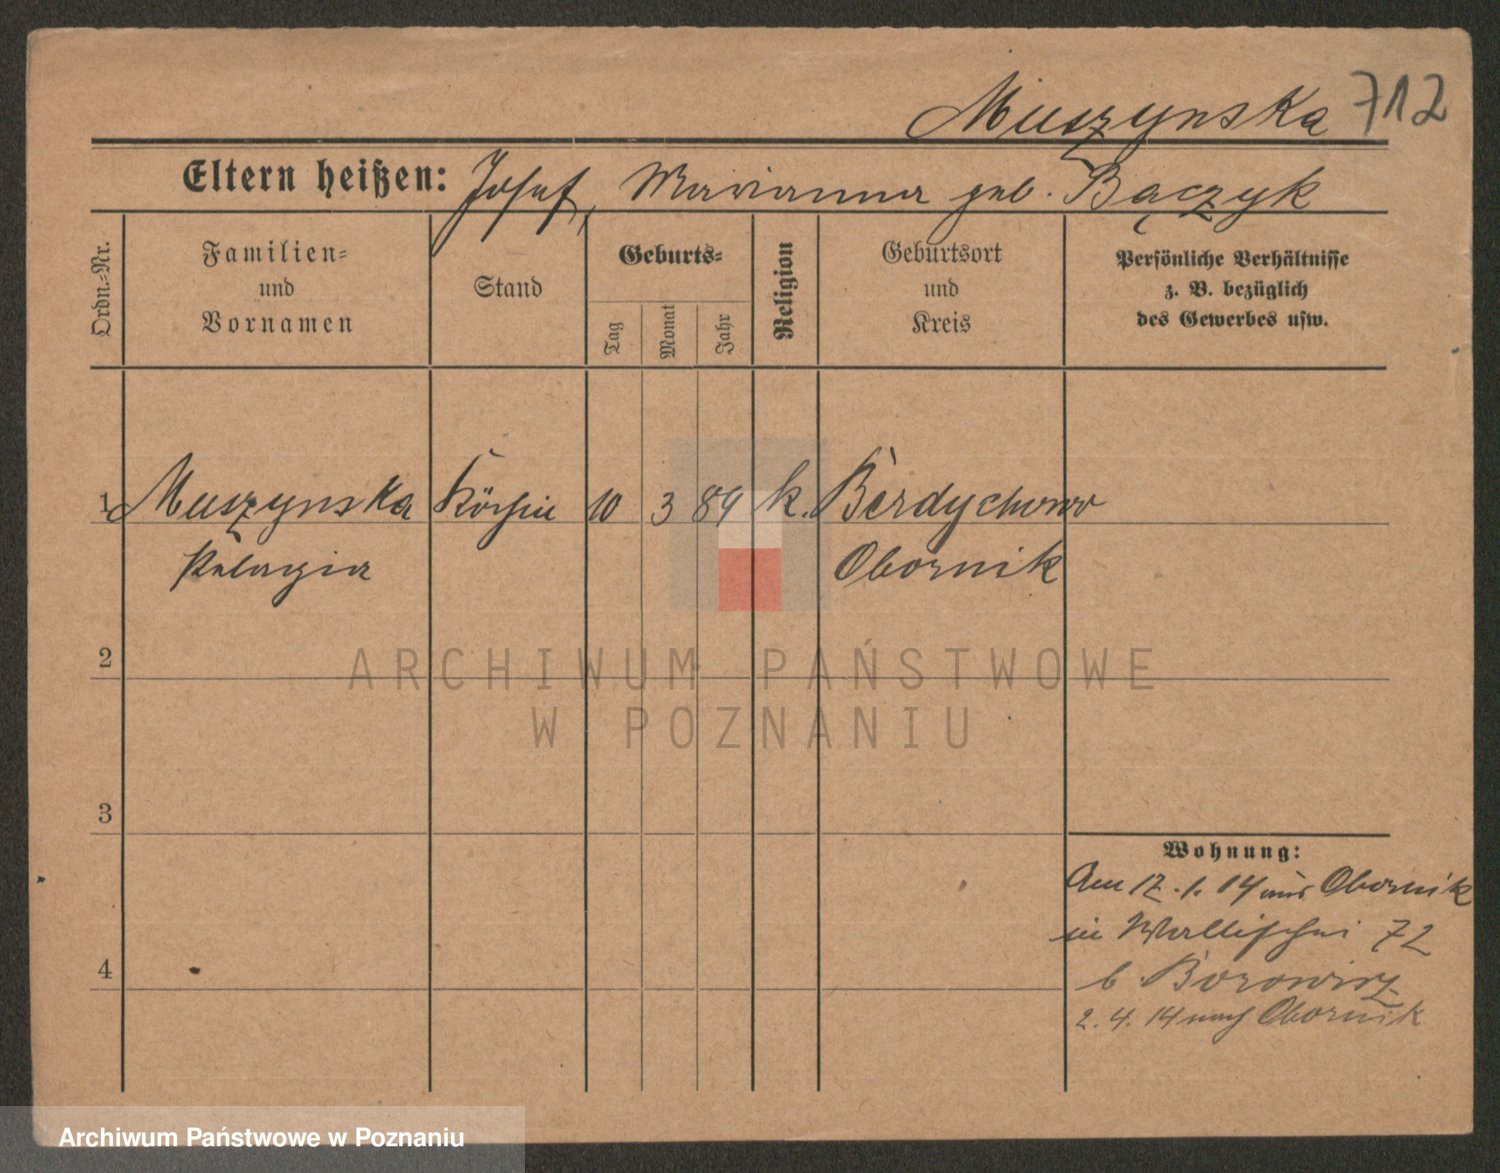 Muszynska 712
Eltern heißen: Josef, Marianna geb. Bączyk
Ordn.-Nr.
Familien-
und
Vornamen
Stand
Geburts-
Tag
Monat
Jahr
Religion
Geburtsort
und
Kreis
Persönliche Verhältnisse
z. B. bezüglich
des Gewerbes usw.
1 Muszynska Köchin 10 3 89 k. Berdychowo
Pelagia Obornik
2
3
4
Wohnung:
Am 17.1.14 aus Obornik
in Wallischei 72
b. Borowicz
2.4.14 nach Obornik
ARCHIWUM PAŃSTWOWE
W POZNANIU
Archiwum Państwowe w Poznaniu